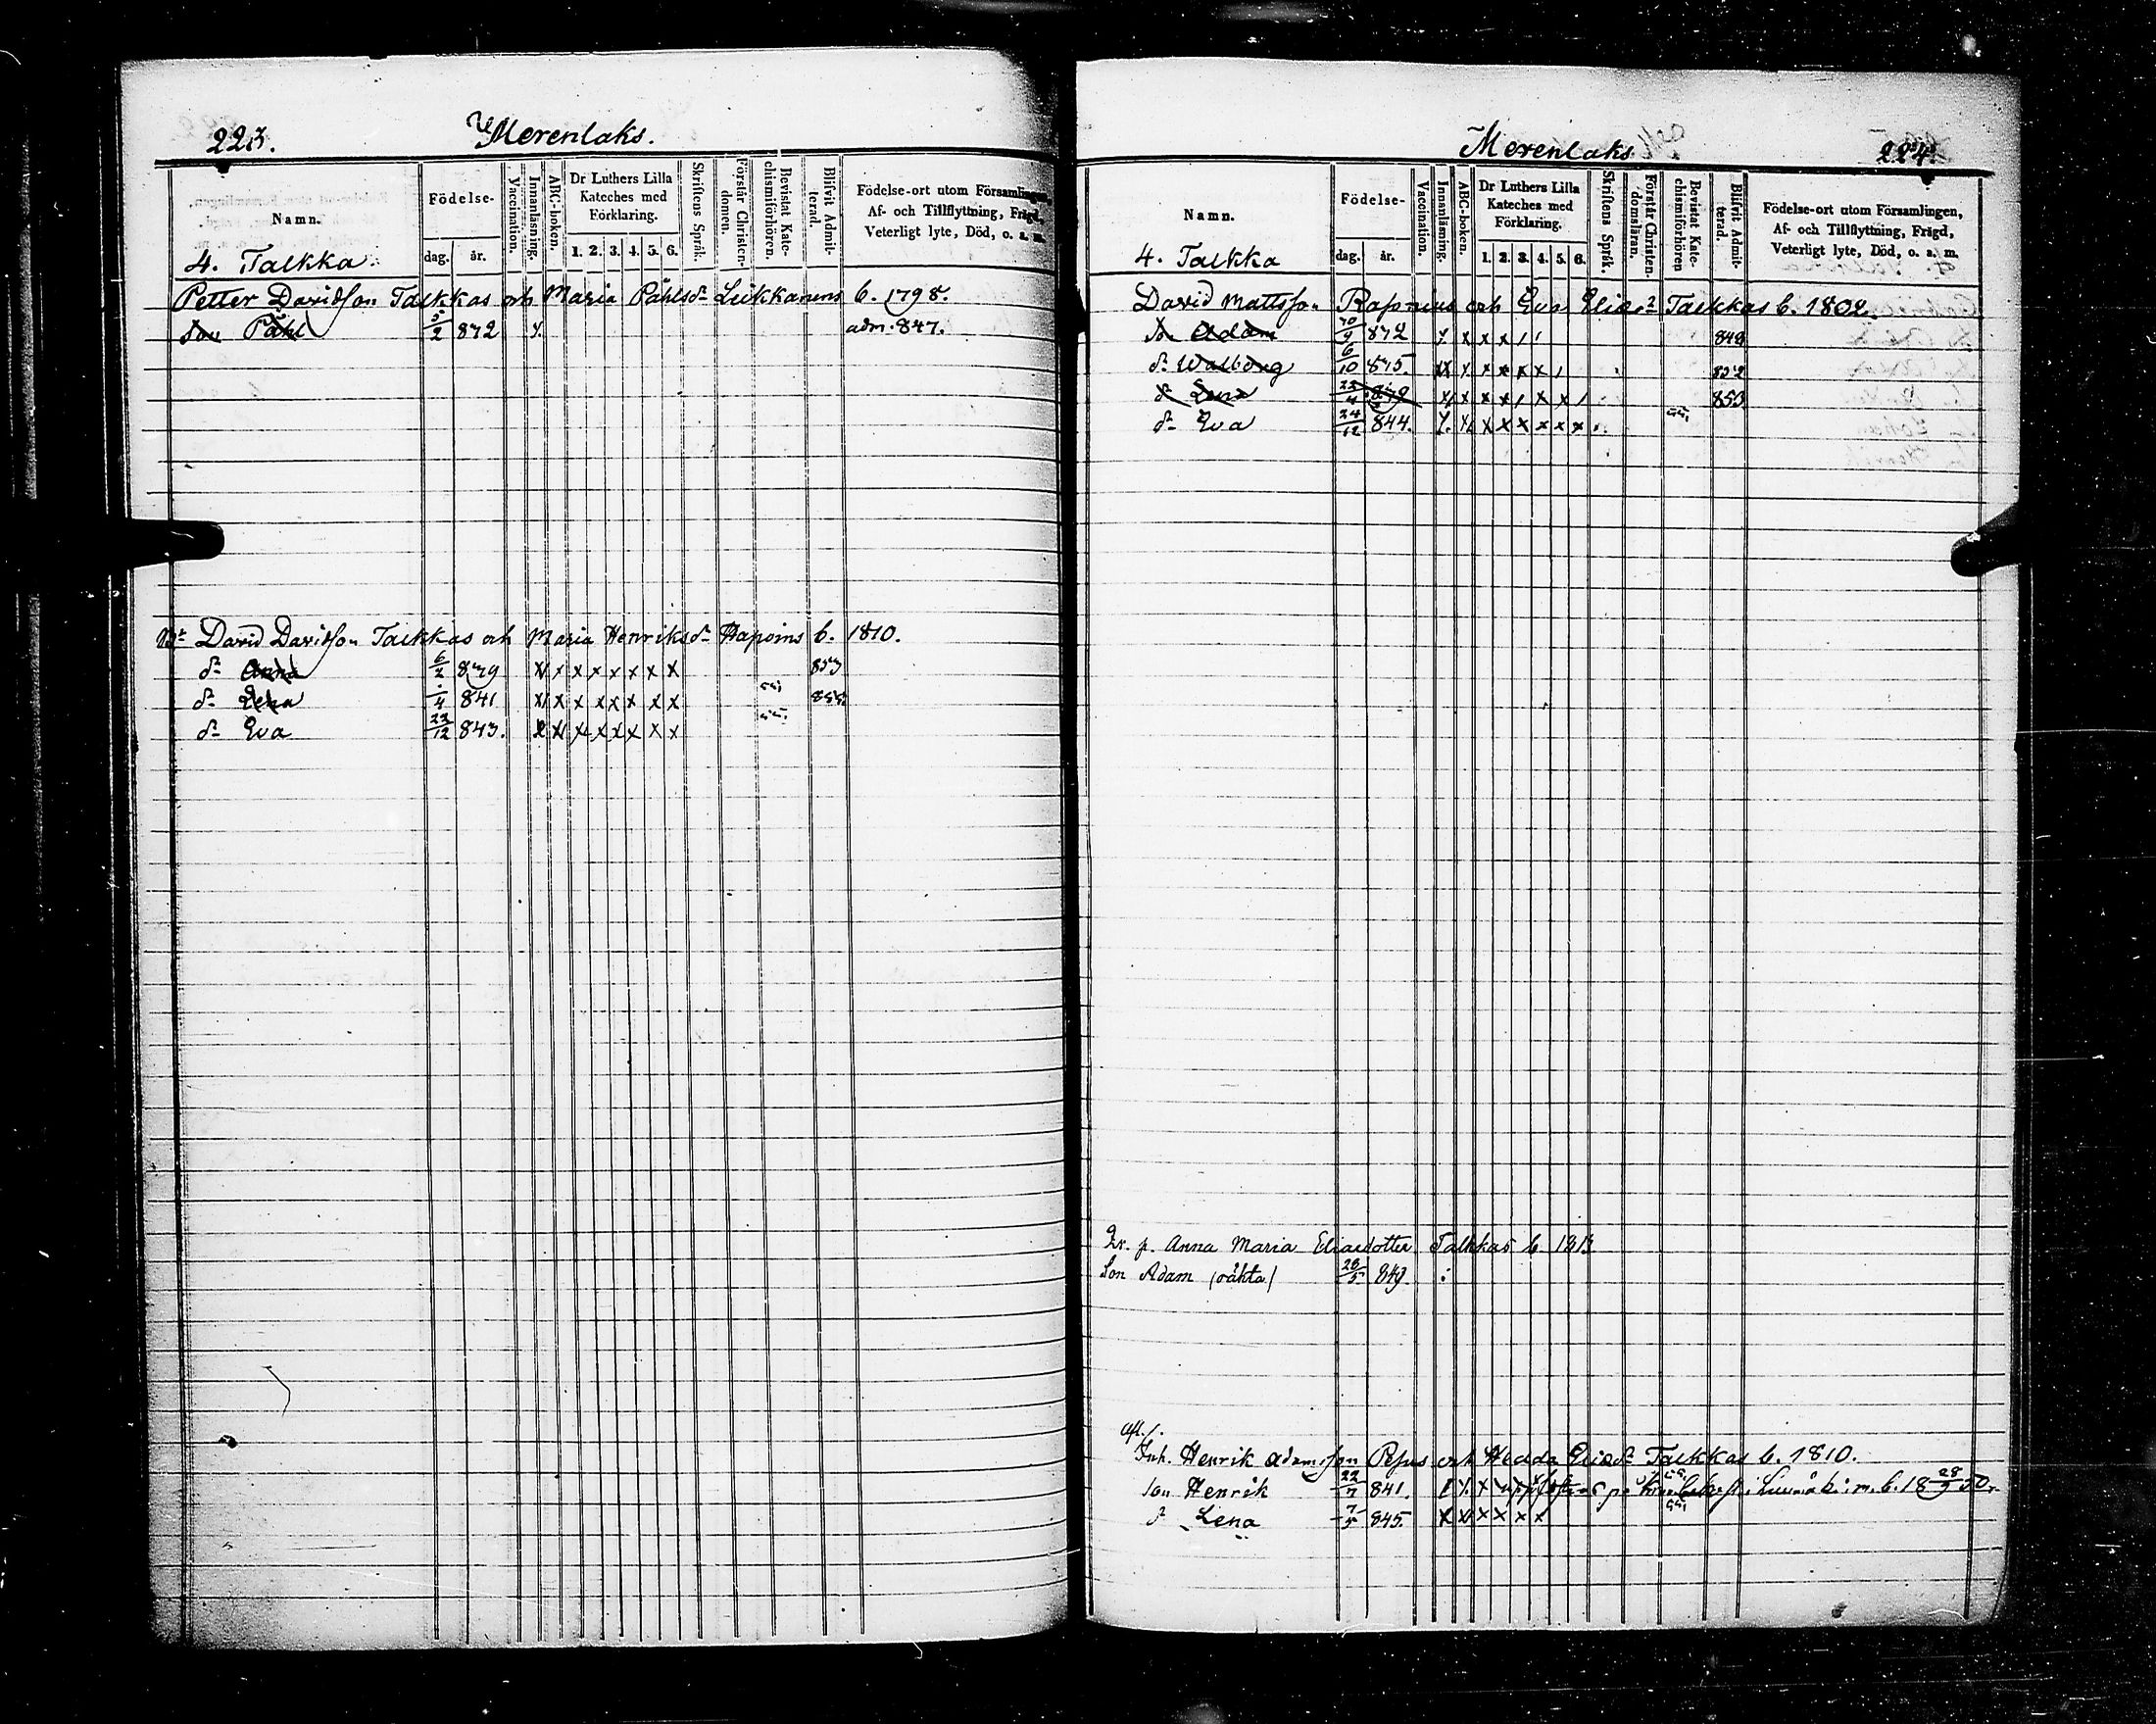 223. Merenlaks.
Namn. Födelse- dag. år. Vaccination. Innanläsning. ABC-boken. Dr Luthers Lilla Kateches med Förklaring. 1. 2. 3. 4. 5. 6. Skriftens Språk. Förstår Christendomen. Bevistat Katechismiförhören. Blifvit Admitterad. Födelse-ort utom Församlingen, Af- och Tillflyttning, Frägd, Veterligt lyte, Död, o. a. m.
4. Talkka
Petter Davidson Talkkas och Maria Påhlsdr Leikkanens b. 1798.
Son Påhl 5/2 832 adm. 847.
David Davidson Talkkas och Maria Henriksdr Raponins b. 1810.
dr Anna 6/2 839 x x x x x x x x 853
dr Lena /4 841 x x x x x x x x 855
dr Eva 22/12 843. x x x x x x x x
Merenlaks 224.
Namn. Födelse- dag. år. Vaccination. Innanläsning. ABC-boken. Dr Luthers Lilla Kateches med Förklaring. 1. 2. 3. 4. 5. 6. Skriftens Språk. Förstår Christendomsläran. Bevistat Katechismiförhören Blifvit Admitterad. Födelse-ort utom Församlingen, Af- och Tillflyttning, Frägd, Veterligt lyte, Död, o. a. m.
4. Talkka
David Mattsson och Eva Eliaed Talkkas b. 1802.
Adam 832 848
dr Walborg 6/10 835. 852
dr Lena 839 853
dr Eva 24/12 844.
Anna Maria Eliaedotter Talkkas b. 1813
Son Adam (oäkta) 28/5 849
Inh. Henrik Adamsson och Hedda Eliaedr Talkkas b. 1810.
son Henrik 22/7 841. på i m. b. 18 50.
d Lena 7/5 845. x x x x x x